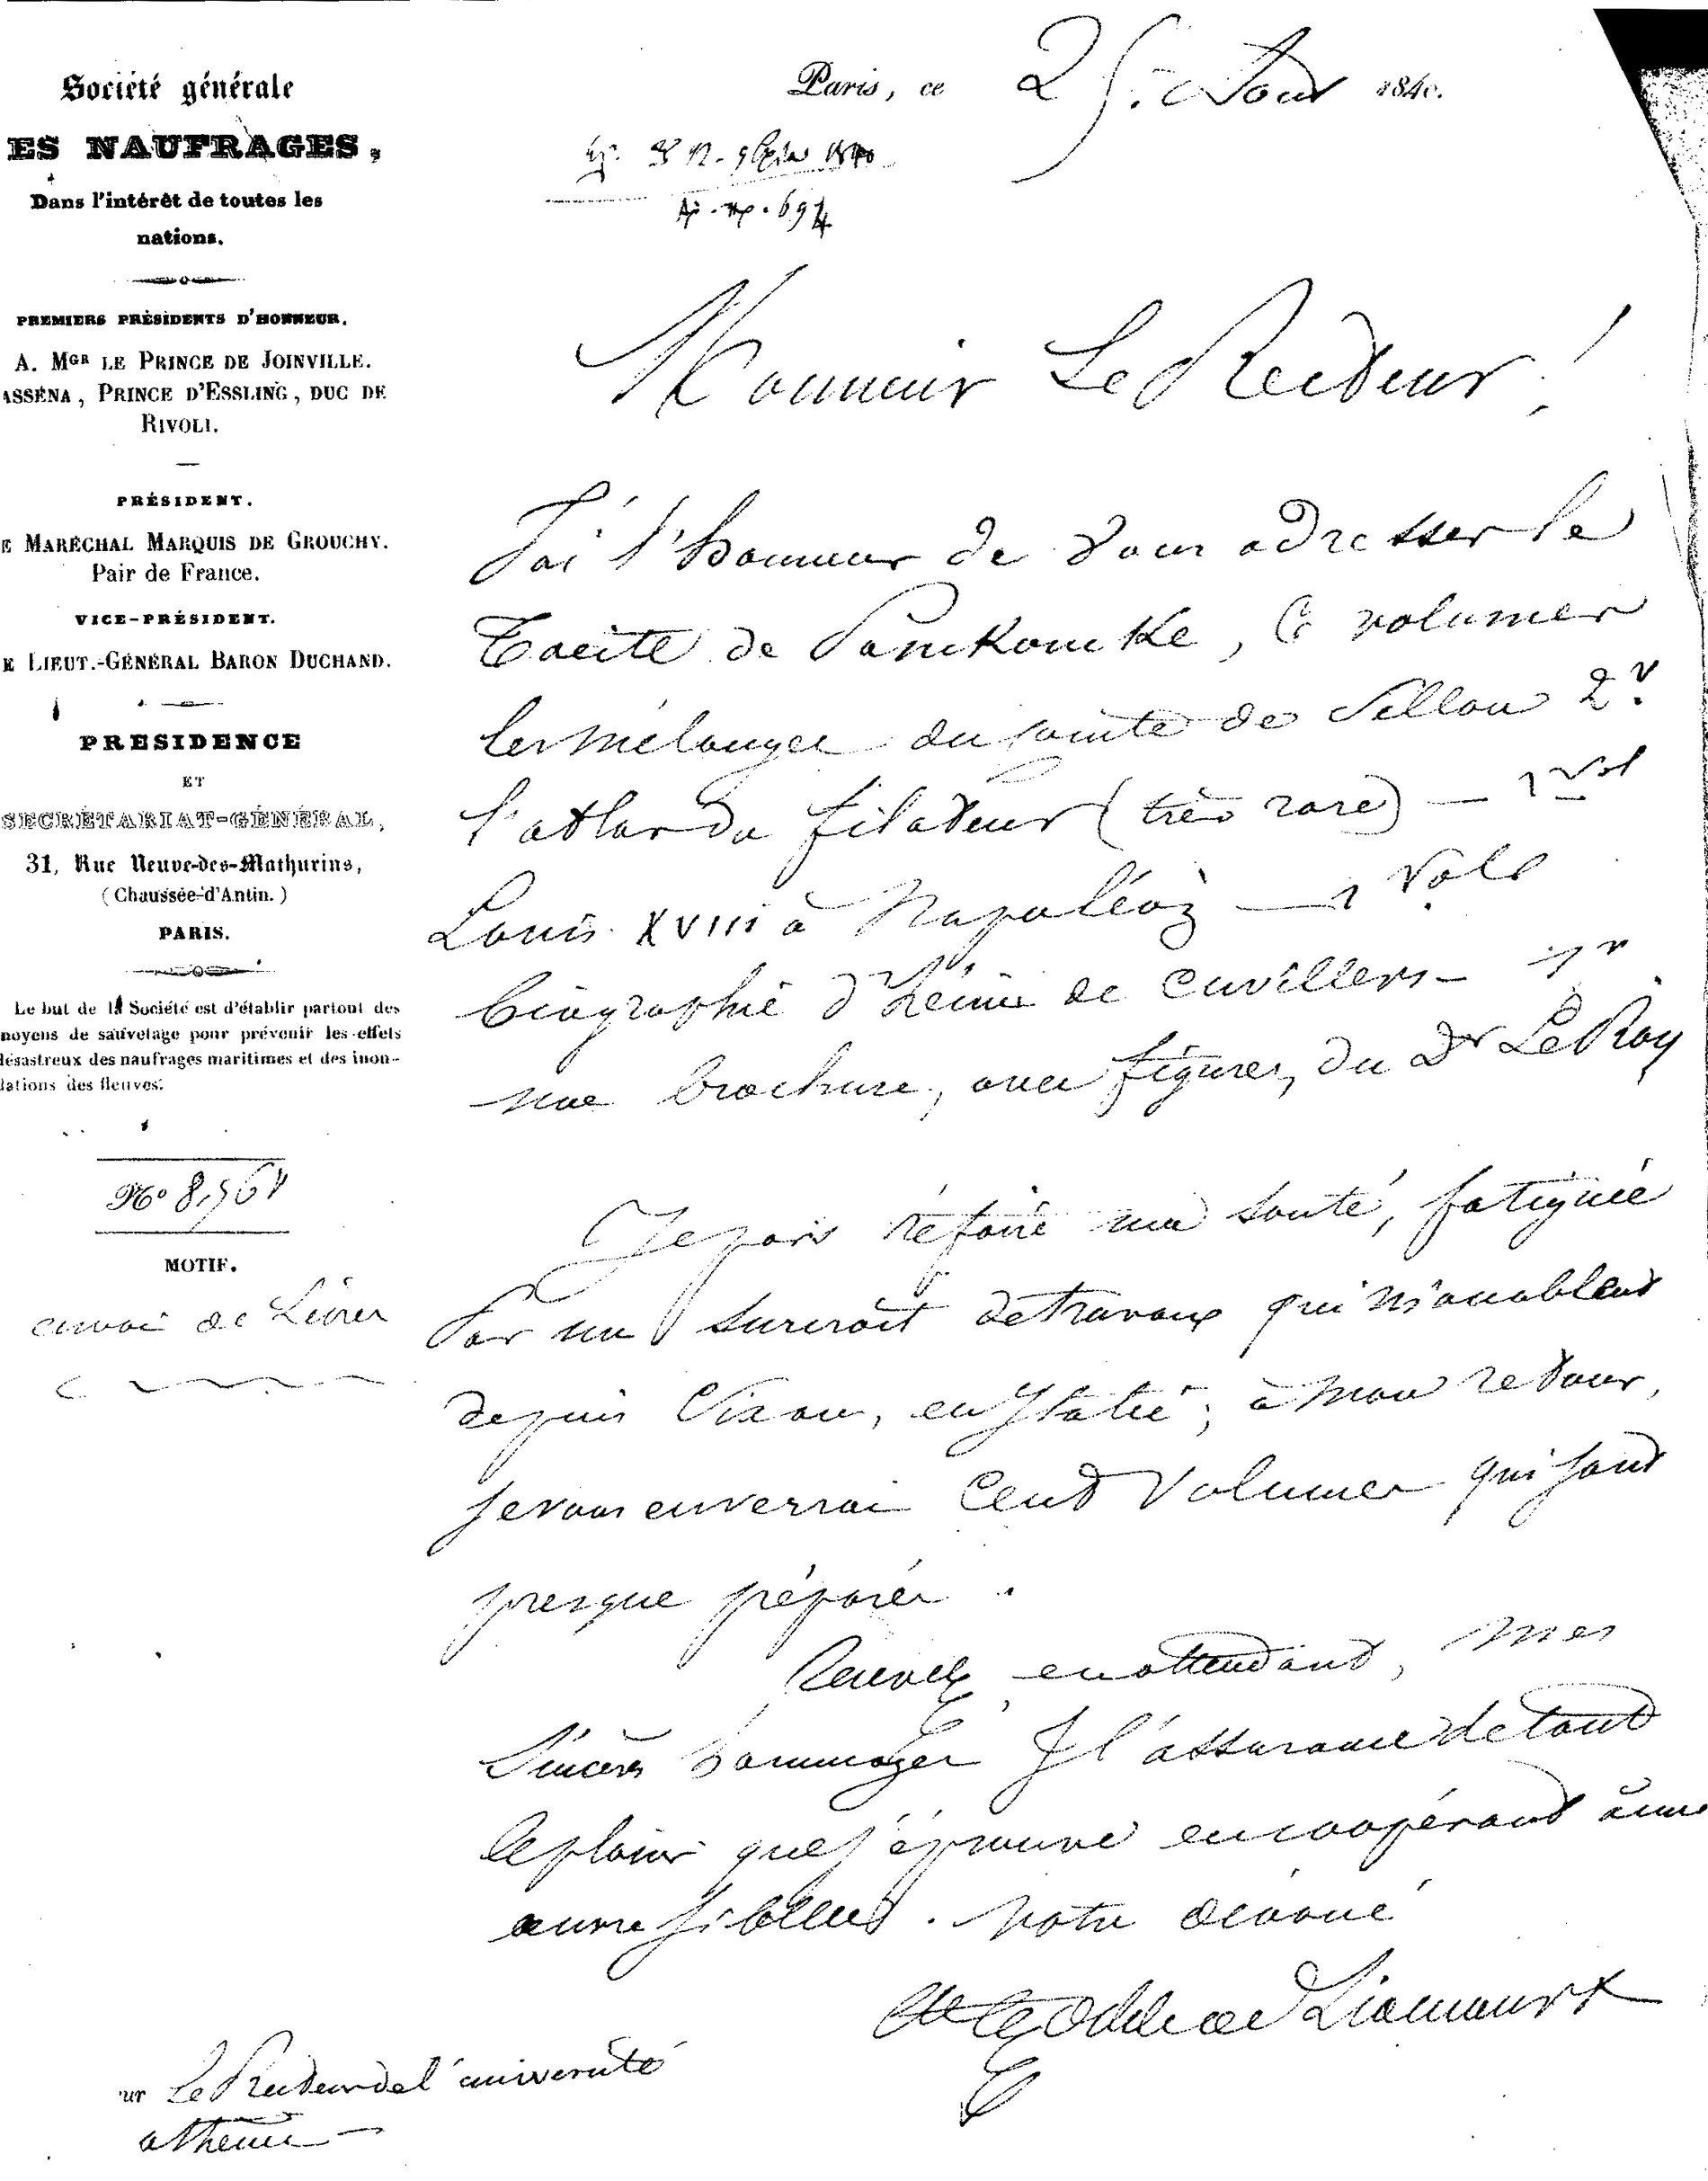 Société générale
ES NAUFRAGES,
Dans l'intérêt de toutes les
nations.
PREMIERS PRÉSIDENTS D'HONNEUR.
A. Mgr le Prince de Joinville.
ASSÉNA, Prince d'Essling, duc de
Rivoli.
PRÉSIDENT.
E Maréchal Marquis de Grouchy.
Pair de France.
VICE-PRÉSIDENT.
E Lieut.-Général Baron Duchand.
PRESIDENCE
ET
SECRÉTARIAT-GÉNÉRAL,
31, Rue Neuve-des-Mathurins,
(Chaussée-d'Antin.)
PARIS.
Le but de la Société est d'établir partout des
moyens de sauvetage pour prévenir les effets
désastreux des naufrages maritimes et des inon-
dations des fleuves.
No
MOTIF.
envoi de Livres
Paris, ce 25. Aout 1840.
694
Monsieur Le Recteur!
J'ai l'honneur de vous adresser le
Tacite de Panckoucke, 6 volumes
les mélanges du comte de Sellon 2 v.
l'atlas du filateur (très rare) — 1 vol
Louis XVIII à Napoléon — 1 vol
biographie d'hénin de Cuvillers — 1 v.
une brochure, avec figures, du Dr Le Roy
Je pars refaire ma santé, fatiguée
Par un surcroît de travaux qui m'accablent
depuis 6 ans, en Italie; à mon retour,
je vous enverrai Cent Volumes qui sont
presque préparés.
Recevez, en attendant, mes
Sincères hommages & l'assurance de tout
le plaisir que j'éprouve en coopérant à une
œuvre si belle. Votre dévoué
Cte Godde de Liancourt
ur Le Recteur de l'université
athènes —